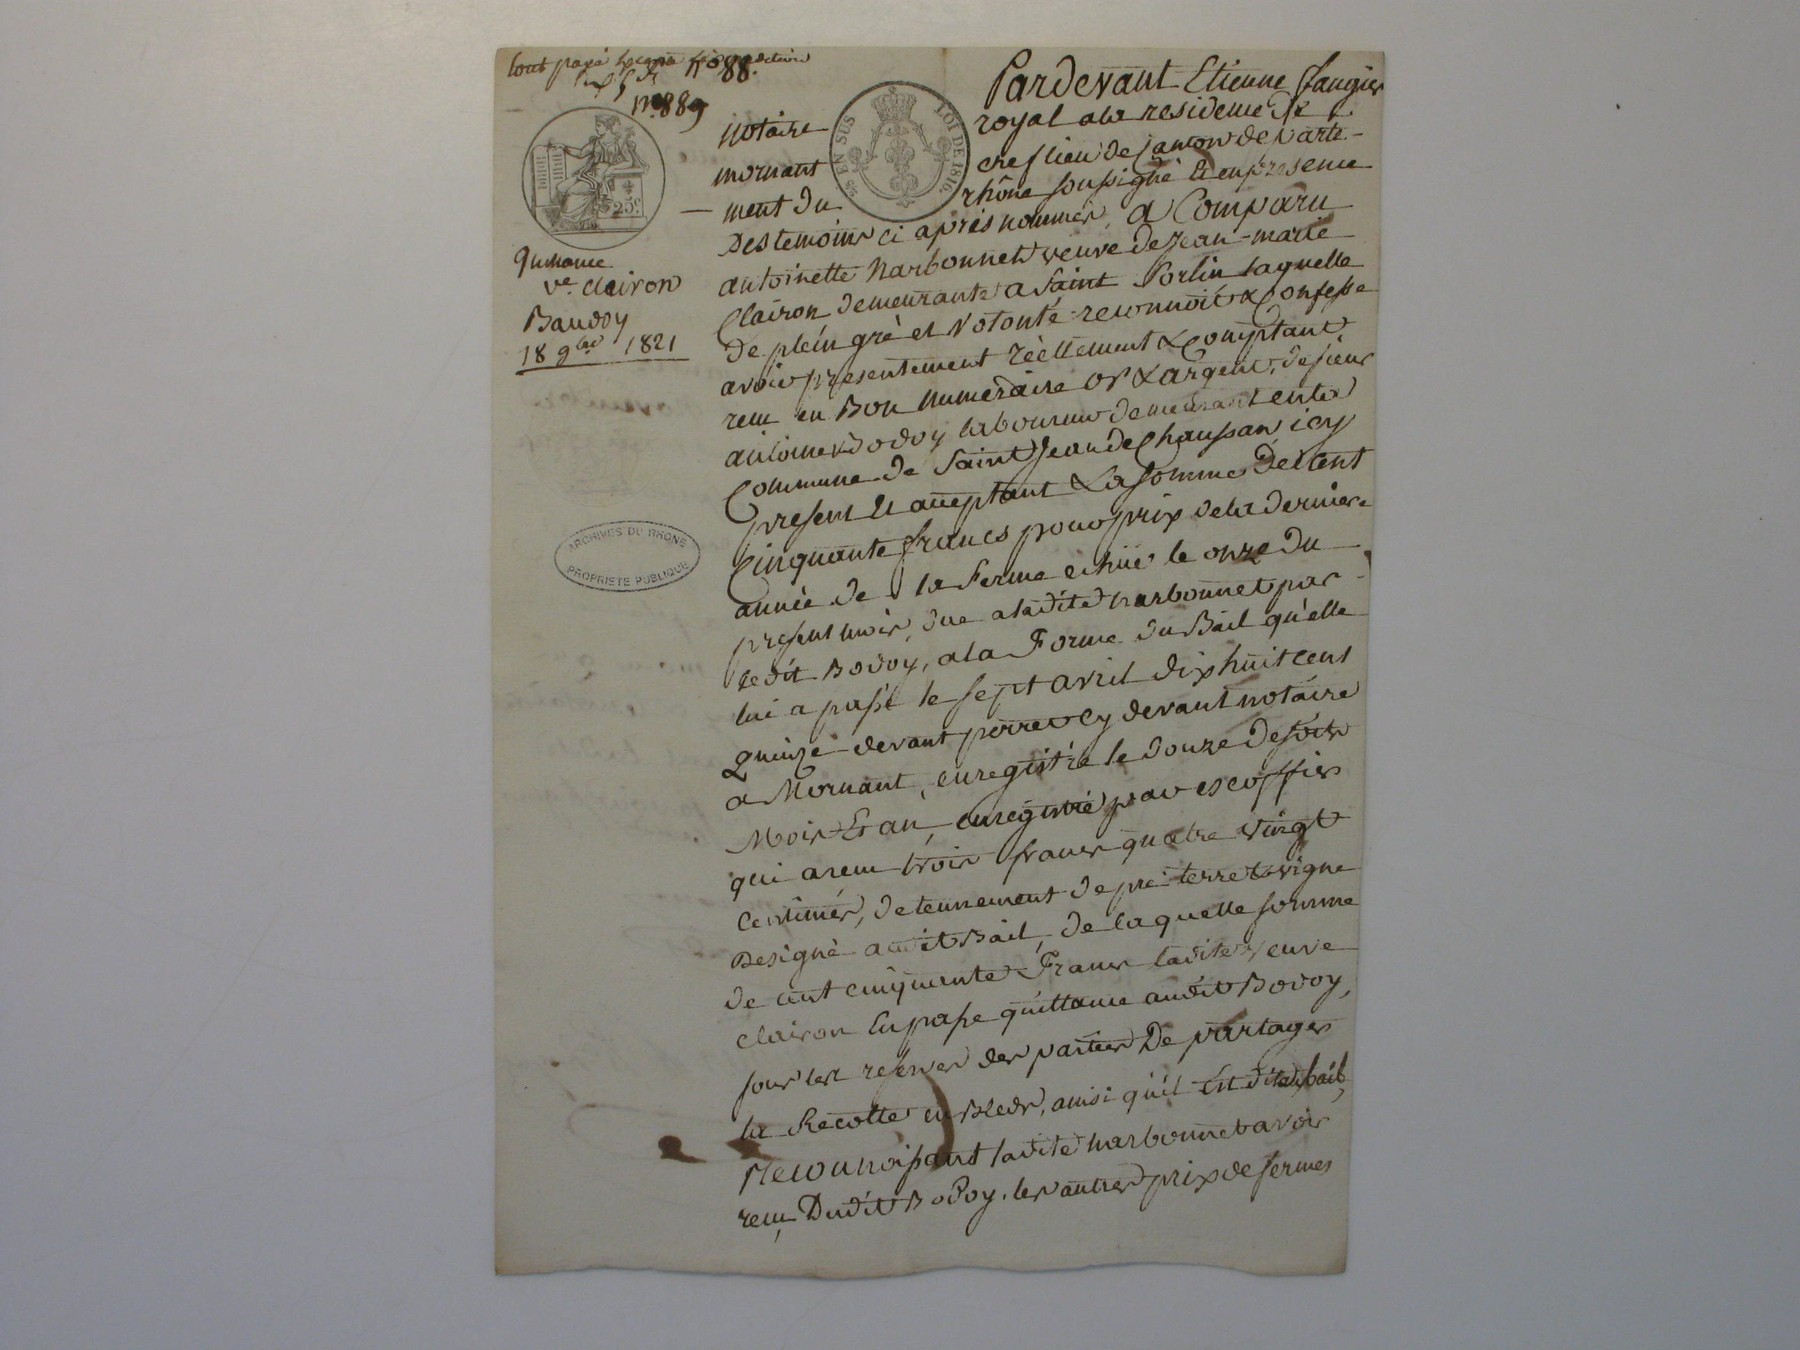 tout payé
nº 88.
nº 889
25 EN SUS
LOI DE 1816.
25c
quittance
ve. clairon
Bauvoy
18 9bre 1821
ARCHIVES DU RHONE
PROPRIETE PUBLIQUE
Pardevant Etienne faugier
notaire royal ala residence de
mornant chef lieu de canton departe-
ment du rhône soussigné & en presence
Des temoins ci après nommés, a Comparu
antoinette Narbonnet veuve de Jean-marie
Clairon demeurante a Saint Sorlin laquelle
de plein gré et volonté reconnoit & Confesse
avoir presentement réellement & comptant
recu en Bon numeraire or & argent, de sieur
antoine Bovoy laboureur demeurant en la
Commune de Saint Jean de Chaussan, icy
present & acceptant La somme De Cent
Cinquante francs pour prix de la derniere
année de la ferme echüe le onze du
present mois, due a ladite narbonnet par
ledit Bovoy, a la Forme du Bail qu'elle
lui a passé le sept avril dix huit cent
Quinze devant pierre cy devant notaire
a Mornant, enregistré le douze desdits
Mois & an, enregistré par escoffier
qui a recu trois francs quatre vingt
centimes, de tennement de pré terre & vigne
Designé audit Bail, de laquelle somme
de cent cinquante Francs ladite veuve
clairon En passe quittance audit Bovoy,
sous les reserves des parties De partager
la Recolte en Bleds, ainsi qu'il Est dit au bail,
Reconnoissant ladite narbonnet avoir
recu Dudit Bovoy, les autres prix de fermes